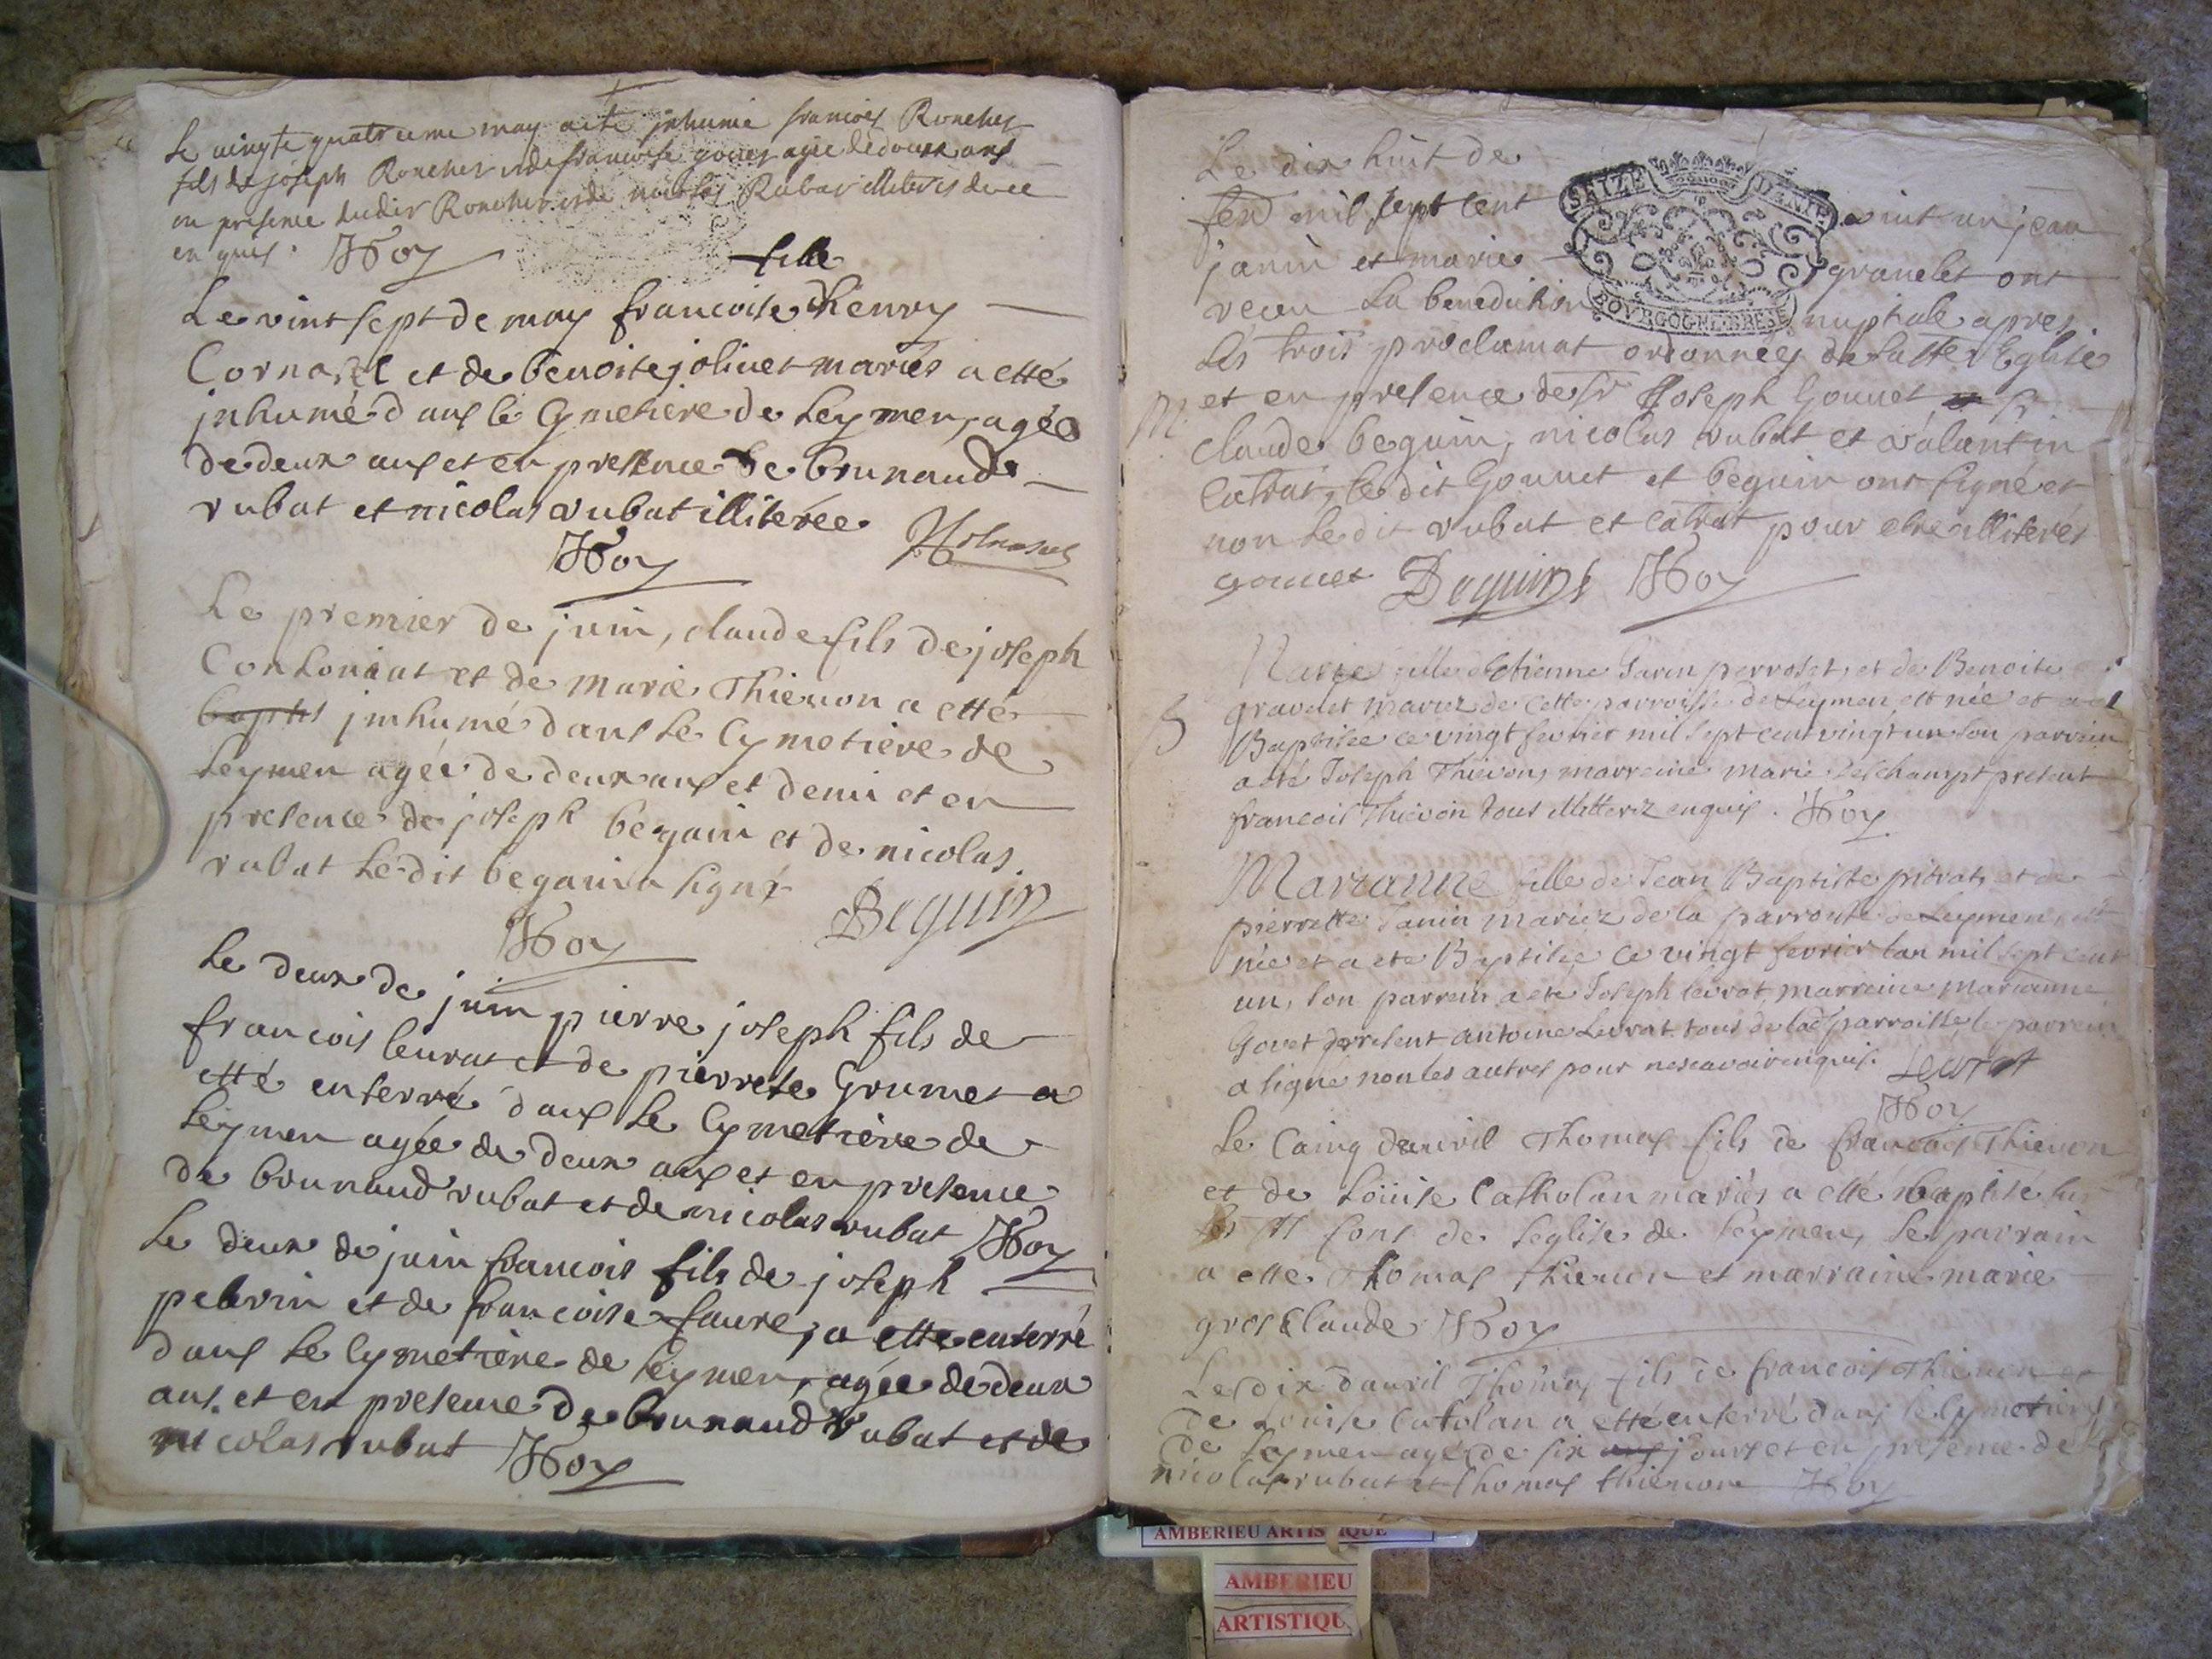 Le vingte quatrieme may a ete inhumé francois Roncher
fils de joseph Roncher et de francoise gouer agée de douze ans
en presence dudit Roncher et de nicolas Rubat illiteres de ce
enquis. Roy
fille
Le vint sept de may francoise thenry
Cornasel et de benoite joliuet mariés a etté
jnhumé dans le Cymetiere de Leymen, agée
de deux ans et en presence de brunaud
rubat et nicolas rubat illiterée
Roy
Le premier de juin, claude fils de joseph
Convoniat et de Marie Thieuon a etté
baptis jnhumé dans Le Cymetiere de
Leymen agée de deux ans et demi et en
presence de joseph beguin et de nicolas
rubat Le dit beguin a signé
Roy Beguin
Le deux de juin pierre joseph fils de
francois leurat et de pierrete Grumet a
etté enterré dans Le Cymetiere de
Leymen agée de deux ans et en presence
de brunaud rubat et de nicolas rubat Roy
Le deux de juin francois fils de joseph
pelurin et de francoise faure, a etté enterré
dans Le Cymetiere de Leymen, agée de deux
ans et en presence de brunaud rubat et de
nicolas rubat Roy
Le dix huit de
feu mil sept cent vint un jean
janin et marie grauelet ont
receu La benediction nuptiale apres
Les trois proclamat ordonnées de Eglise
M. et en presence de Sr Joseph Gouuet
claude beguin, nicolas rubat et valantin
Catrat, le dit Gouuet et beguin ont signé et
non Le dit rubat et catrat pour etre illiterés
gouuet Beguin Roy
SEIZE DENIE
BOVRGOGNE BRESE
Marie fille d'Etienne Janin perroset, et de Benoite
B gravelet mariez de cette parroisse de Leymen est née et a été
Baptisée ce vingt fevrier mil sept cent vingt un son parrein
a eté Joseph Thievon, marreine Marie Deschampt present
francois Thievon tous illitterez enquis. Roy
Marianne fille de Jean Baptiste pitrat, et de
pierrette Janin mariez de la parroisse de Leymen, est
née et a ete Baptisée ce vingt fevrier l'an mil sept cent
un, son parrein a ete Joseph levrat, marreine Marianne
Govet present antoine Levrat tous de lad parroisse, le parrein
a signé non les autres pour ne scavoir enquis. Leurat
Roy
Le Cainq dauvil Thomas fils de francois Thieuon
et de Loüise Catholan mariés a etté baptisé sur
Les ff fons de Leglise de Leymen, Le parrain
a etté Thomas Thieuon et marraine marie
grosclaude Roy
Le dix dauril Thomas fils de francois Thieuon et
de Louise Catolan a etté enterré dans le Cymetiere
de Leymen agé de six ans jours et en presence de
nicolas rubat et Thomas thieuon Roy
AMBERIEU ARTISTIQUE
AMBERIEU
ARTISTIQU